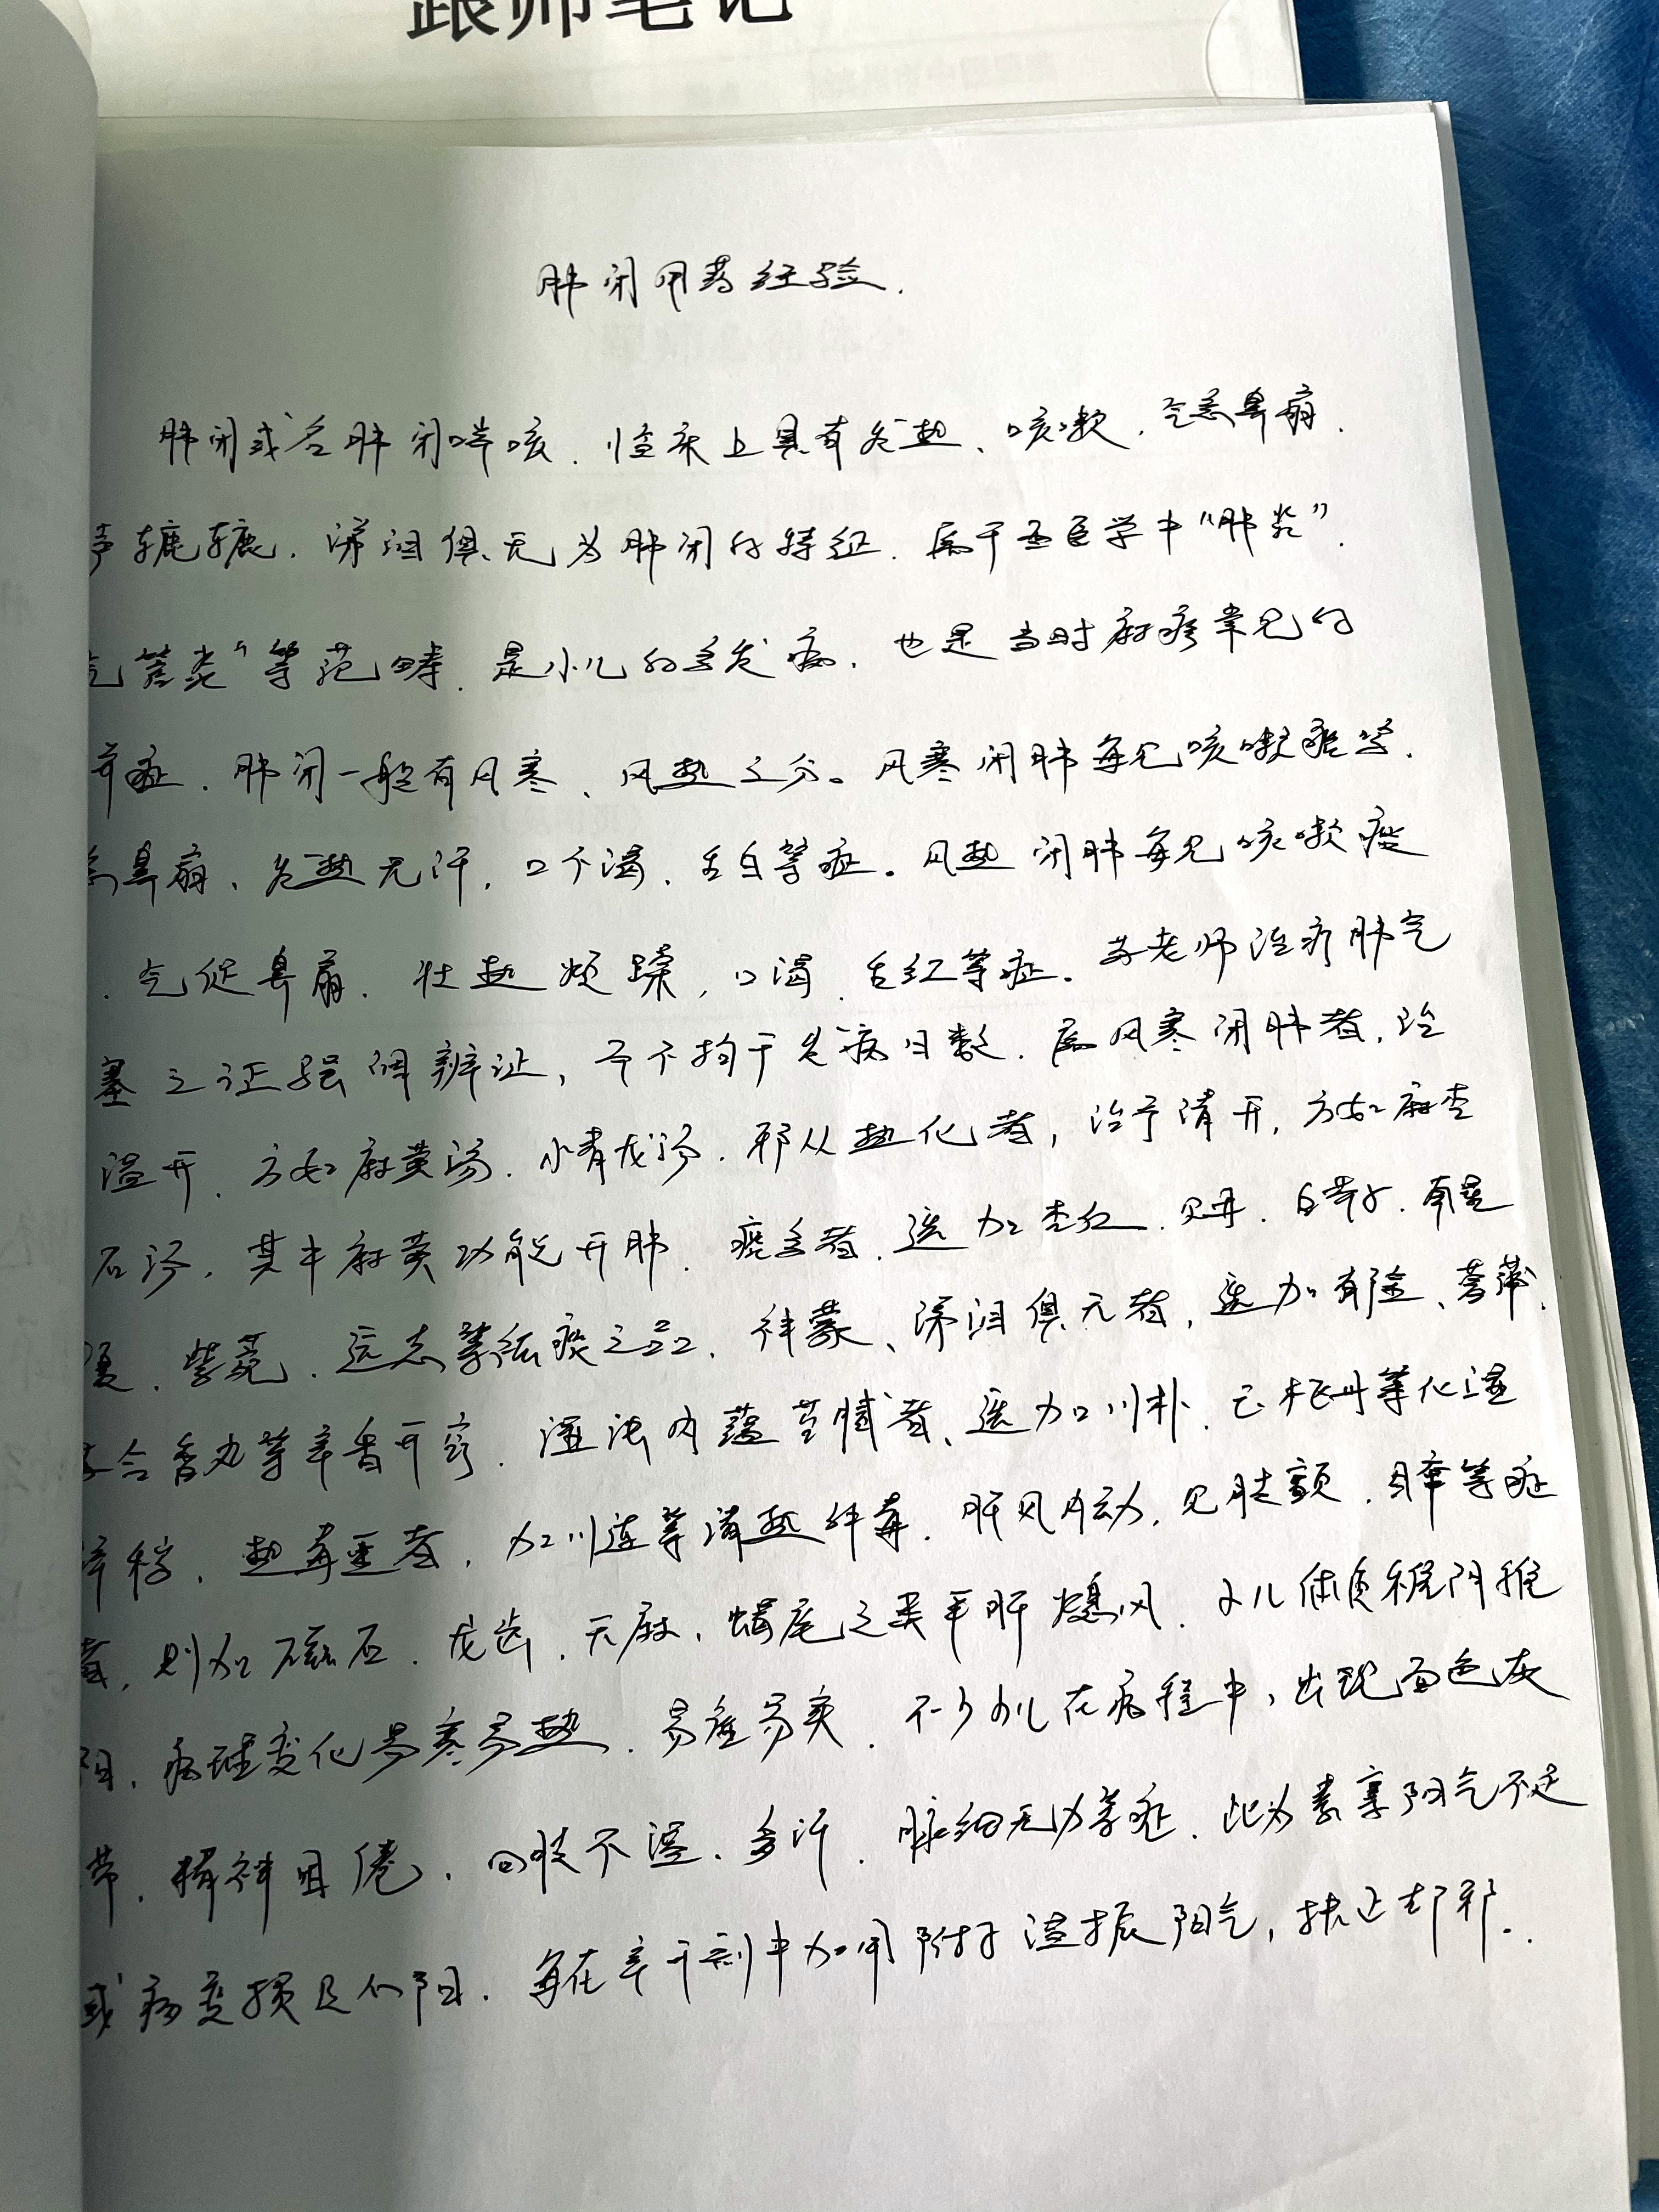 跟师笔记
肺闭用药经验.
肺闭或名肺闭喘咳.临床上具有发热、咳嗽.气急鼻扇.
声辘辘.涕泪俱无为肺闭的特征.属于西医学中“肺炎”.
气管炎”等范畴.是小儿的多发病.也是当时麻疹常见的
并症.肺闭一般有风寒、风热之分。风寒闭肺每见咳嗽
鼻扇、发热无汗,口不渴、舌白等症。风热闭肺每见咳嗽痰
.气促鼻扇.壮热烦躁,口渴.舌红等症.苏老师治疗肺气
塞之证强调辨证,而不拘于发病日数.属风寒闭肺者,治
温开.方如麻黄汤.小青龙汤.邪从热化者,治予清开,方如麻杏
石汤.其中麻黄功能开肺.痰多者.选加杏仁.贝母.白芥子.南星
夏.紫菀.远志等祛痰之品.神蒙、涕泪俱无者,选加、菖蒲.
合香丸等辛香开窍.湿浊内蕴苔腻者、选加川朴.玉枢丹等化湿
.热毒重者,加川连等清热解毒.肝风内动,见肢颤.等症
者,则加磁石.龙齿.天麻、蝎尾之类平肝熄风.小儿体质稚阴稚
阳.病理变化易寒易热.易虚易实.不少小儿在病程中,出现面色灰
滞.精神困倦.四肢不温、多汗.脉细无力等症.此为素禀阳气不足
或病变损及心阳.每在辛开剂中加用附子温振阳气,扶正却邪.